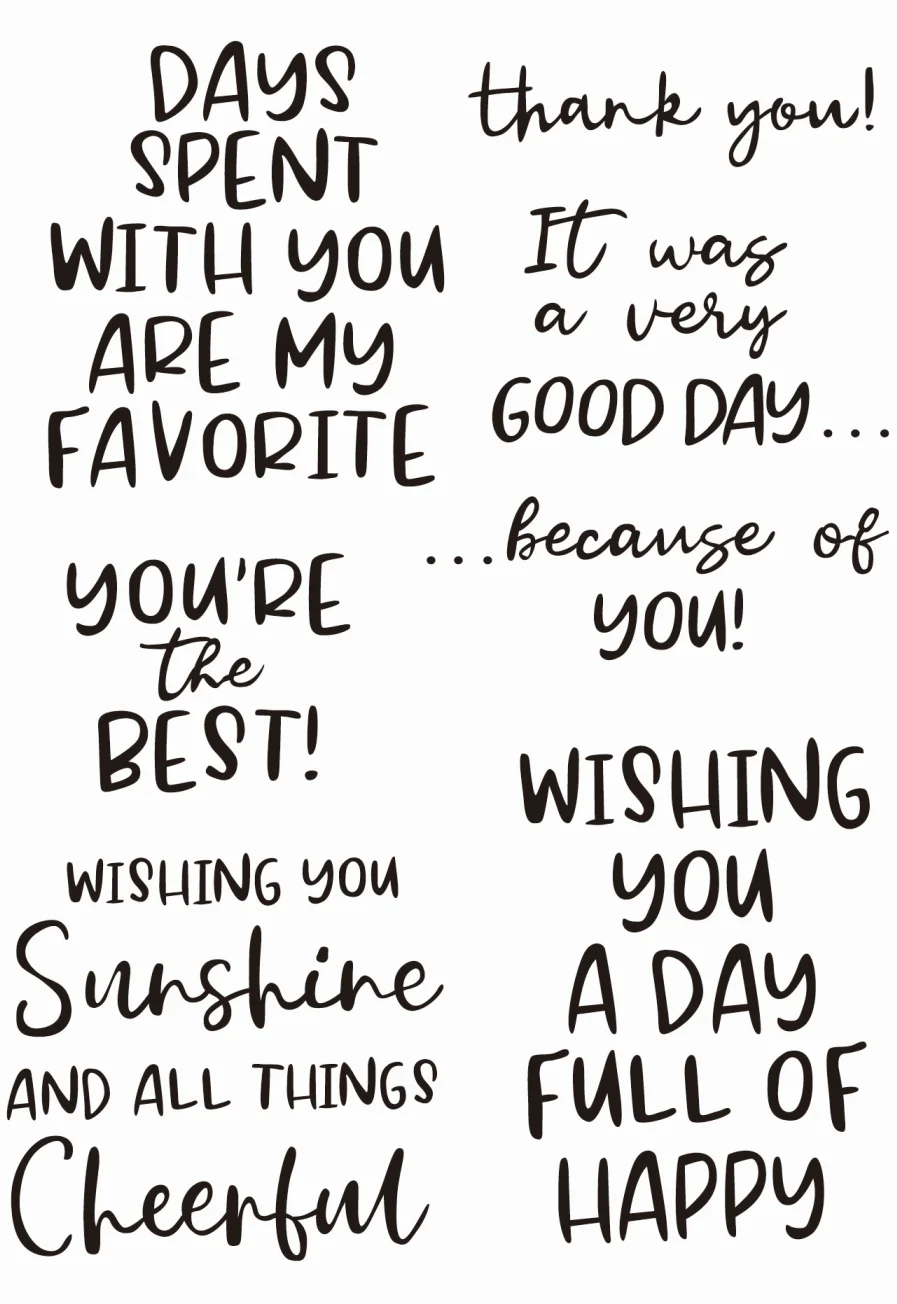 DAYS
SPENT
WITH YOU
ARE MY
FAVORITE
thank you!
It was
a very
GOOD DAY...
...because of
YOU!
YOU'RE
the
BEST!
WISHING YOU
Sunshine
AND ALL THINGS
Cheerful
WISHING
YOU
A DAY
FULL OF
HAPPY